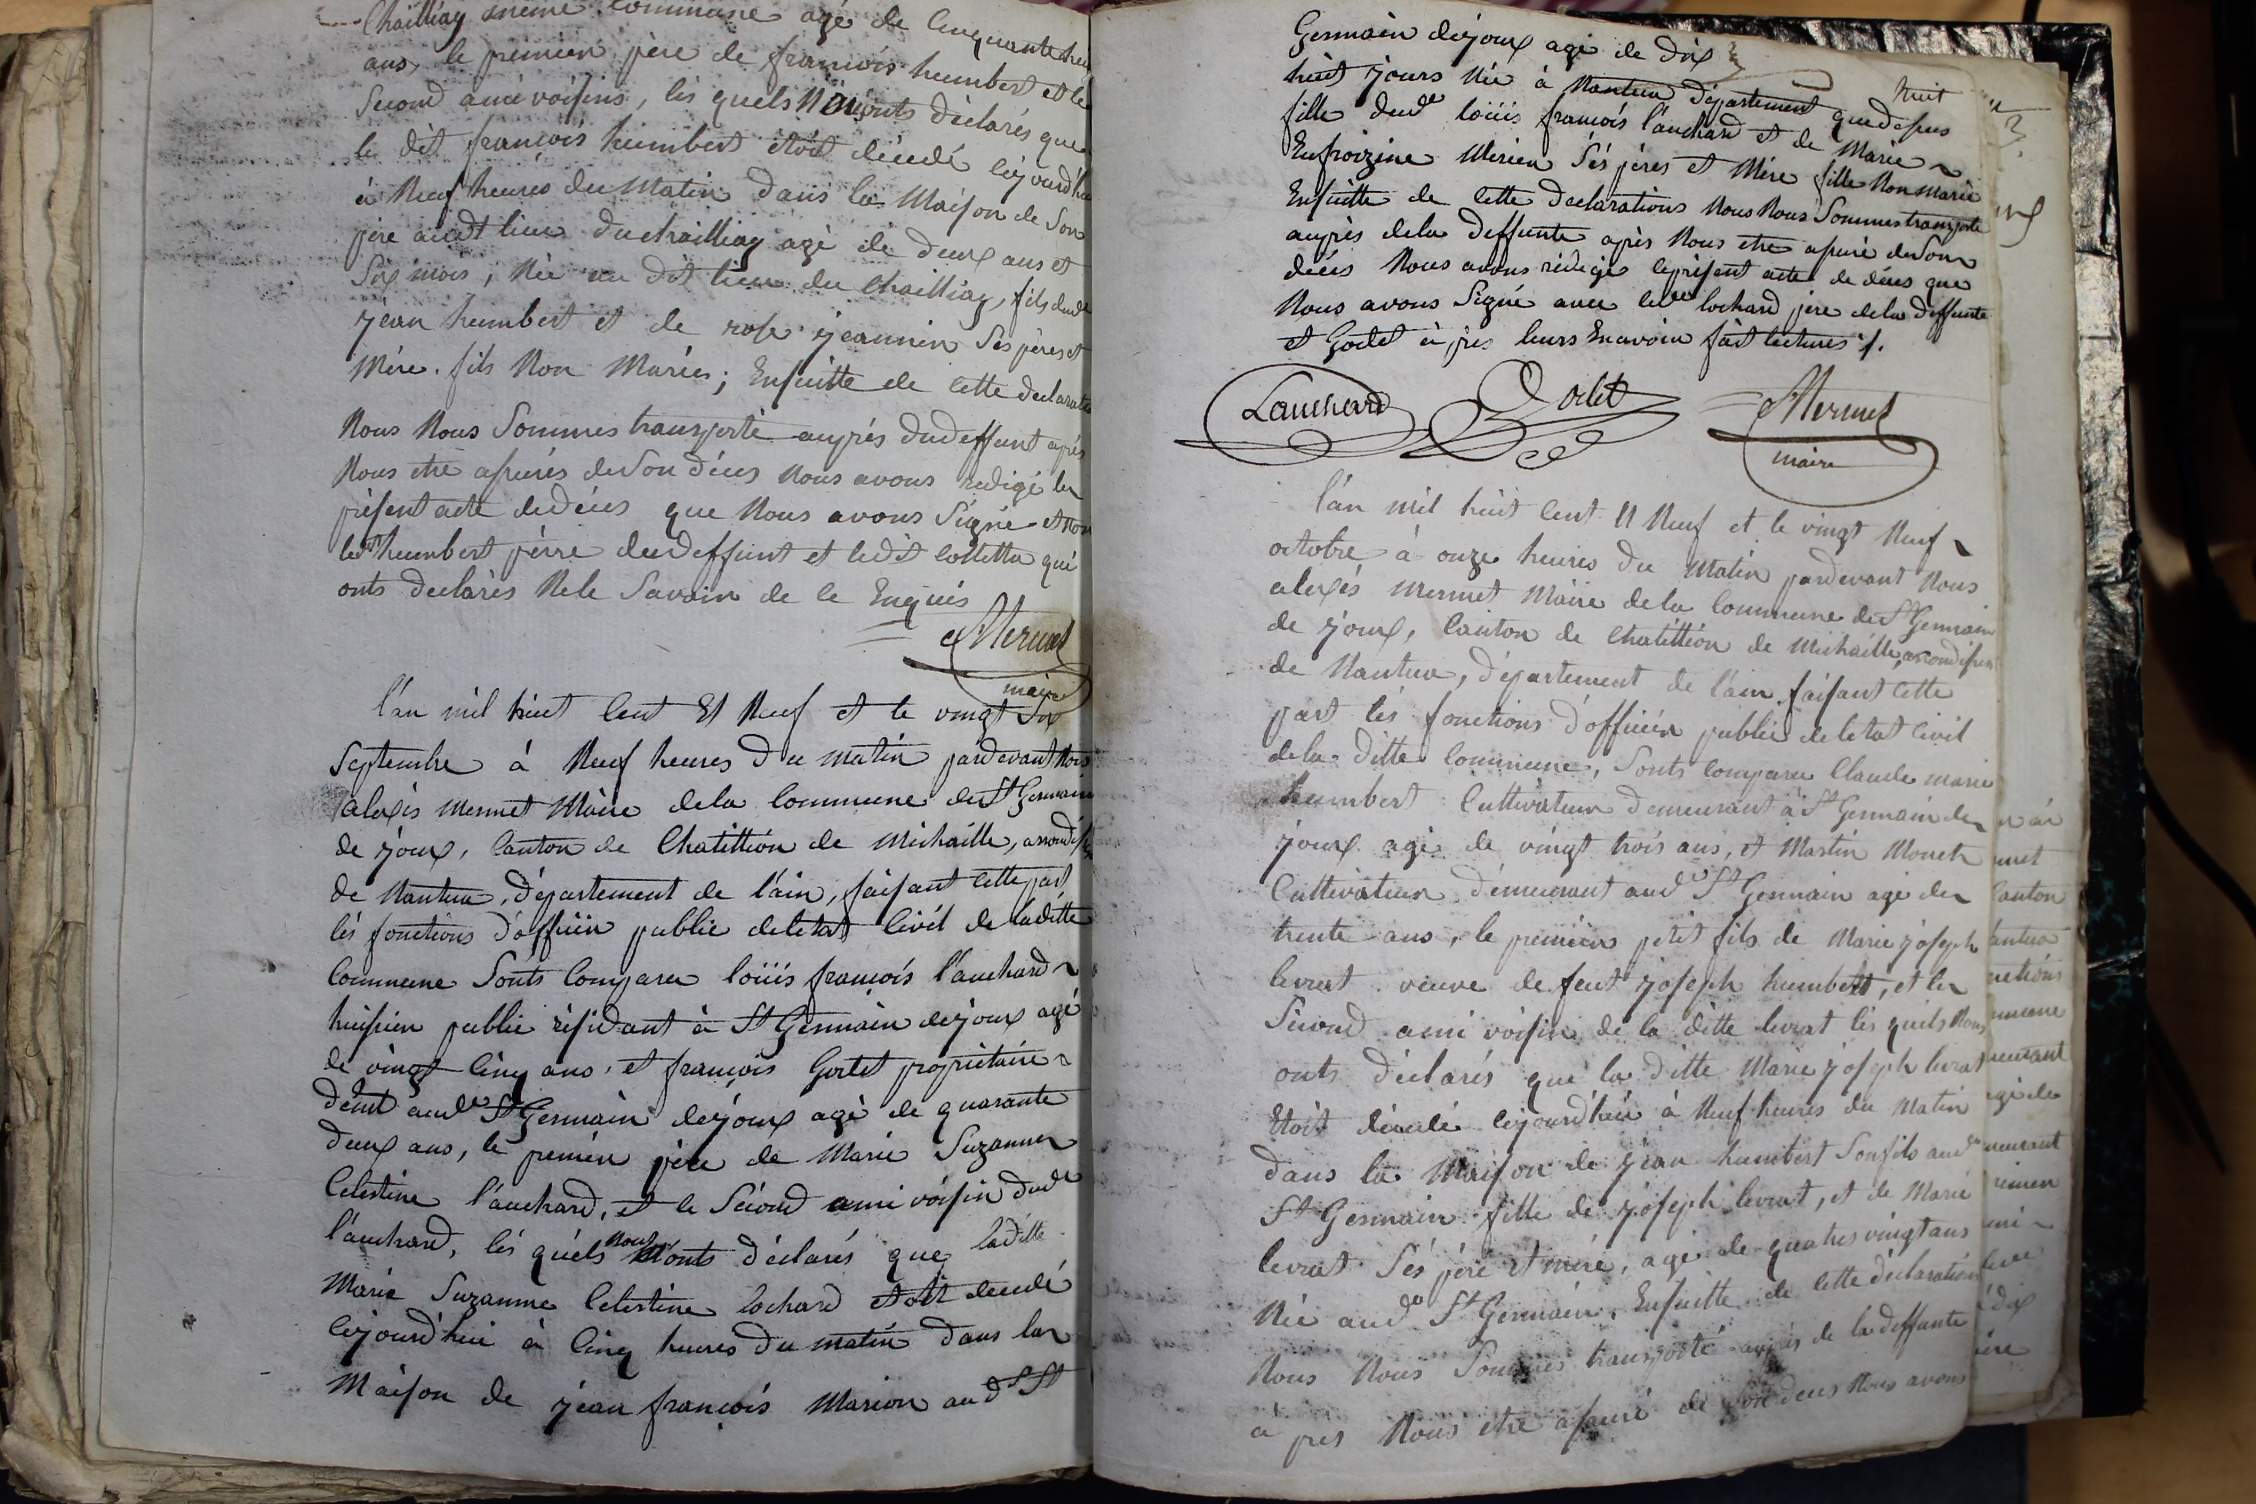 Chailliay meme Commune agé de Cinquante
ans, le premier père de françois humbert et le
Second ami voisins, lés quels Nous onts déclarés que
le dit françois humbert étoit décédé cejourd'hui
à Neuf heures du Matin dans la Maison de Son
père audt lieu du chailliay agé de deux ans et
Six mois, Née au dit lieu du Chailliay, fils dude
jean humbert et de rose jeannin Sés pères et
Mère. fils Non Mariés; Ensuitte de cette declaration
Nous Nous Sommes transporté auprés dudeffunt aprés
Nous etre assurés de Son décés Nous avons redigé le
présent acte dedécés que Nous avons Signé et non
led humbert pérre dudeffunt et ledit Colletta qui
onts declarés Ne le Savoir de ce Enquis
AMermet
maire
l'an mil huit Cent Et Neuf et le vingt Six
Septembre à Neuf heures Du matin pardevant Nous
alexis Mermet Maire dela Commune de St Germain
de joux, Canton de Chatillion de Michaille, arrondiss
de Nantua, Département de l'ain, faisant cette part
lés fonctions d'officier public del'etat Civil de la ditte
Commune Sonts Comparu loüis françois l'auchard ~
huissier public résidant à St Germain dejoux agé
de vingt Cinq ans, et françois Gotlet propriétaire ~
demt aude St Germain dejoux agé de quarante
deux ans, le premier père de Marie Suzanne
Celestine l'auchard, et le Sécond ami voisin dude
l'auchard, lés quels Nous onts déclarés que laditte
Marie Suzanne Celestine Lochard etoit decedé
cejourd'hui à Cinq heures Du matin dans la
Maison de jean françois Marion aud St
Germain dejoux agé de Dix
huit
huit jours Née à Nantua Département que dessus
fille dude loüis françois l'auchard et de Marie ~
Enfroizine Mérien Sés pères et Mère fille Non marié
Ensuitte de cette declarations Nous Nous Sommes transporté
auprès dela deffunte après Nous etre assuré de Son
décés Nous avons rédigés leprésent acte de décés que
Nous avons Signé avec led lochard père dela deffunte
et Godet à près leurs En avoir fait lectures /.
Lauchard Godet AMermet
maire
l'an mil huit Cent Et Neuf et le vingt Neuf ~
octobre à onze heures Du Matin pardevant Nous
alexés Mermet Maire dela Commune de St Germain
de joux, Canton de Chatillion de Michaille, arrondissem
de Nantua, Département de l'ain faisant Cette
part lés fonctions d'officier public de letat Civil
dela Ditte Commune, Sonts Comparu Claude marie
humbert Cultivateur demeurant à St Germain de
joux agé de vingt trois ans, et Martin Monet
Cultivateur Démeurant aude St Germain agé de
trente ans, le premier petit fils de Marie joseph
levrat veuve de feut joseph humbert, et le
Sécond ami voisin de la ditte levrat lés quels Nous
onts déclarés que la Ditte Marie joseph levrat
Etoit décédé cejourd'hui à Neuf heures du Matin
dans la Maison de jean humbert Son fils aude
St Germain fille de joseph levrat, et de Marie
levrat Sés père et mère, agé de quatres vingt ans
Née aude St Germain, Ensuitte de cette déclaration
Nous Nous Sommes transporté auprés de la deffunte
à près Nous etre assuré de Son decés Nous avons